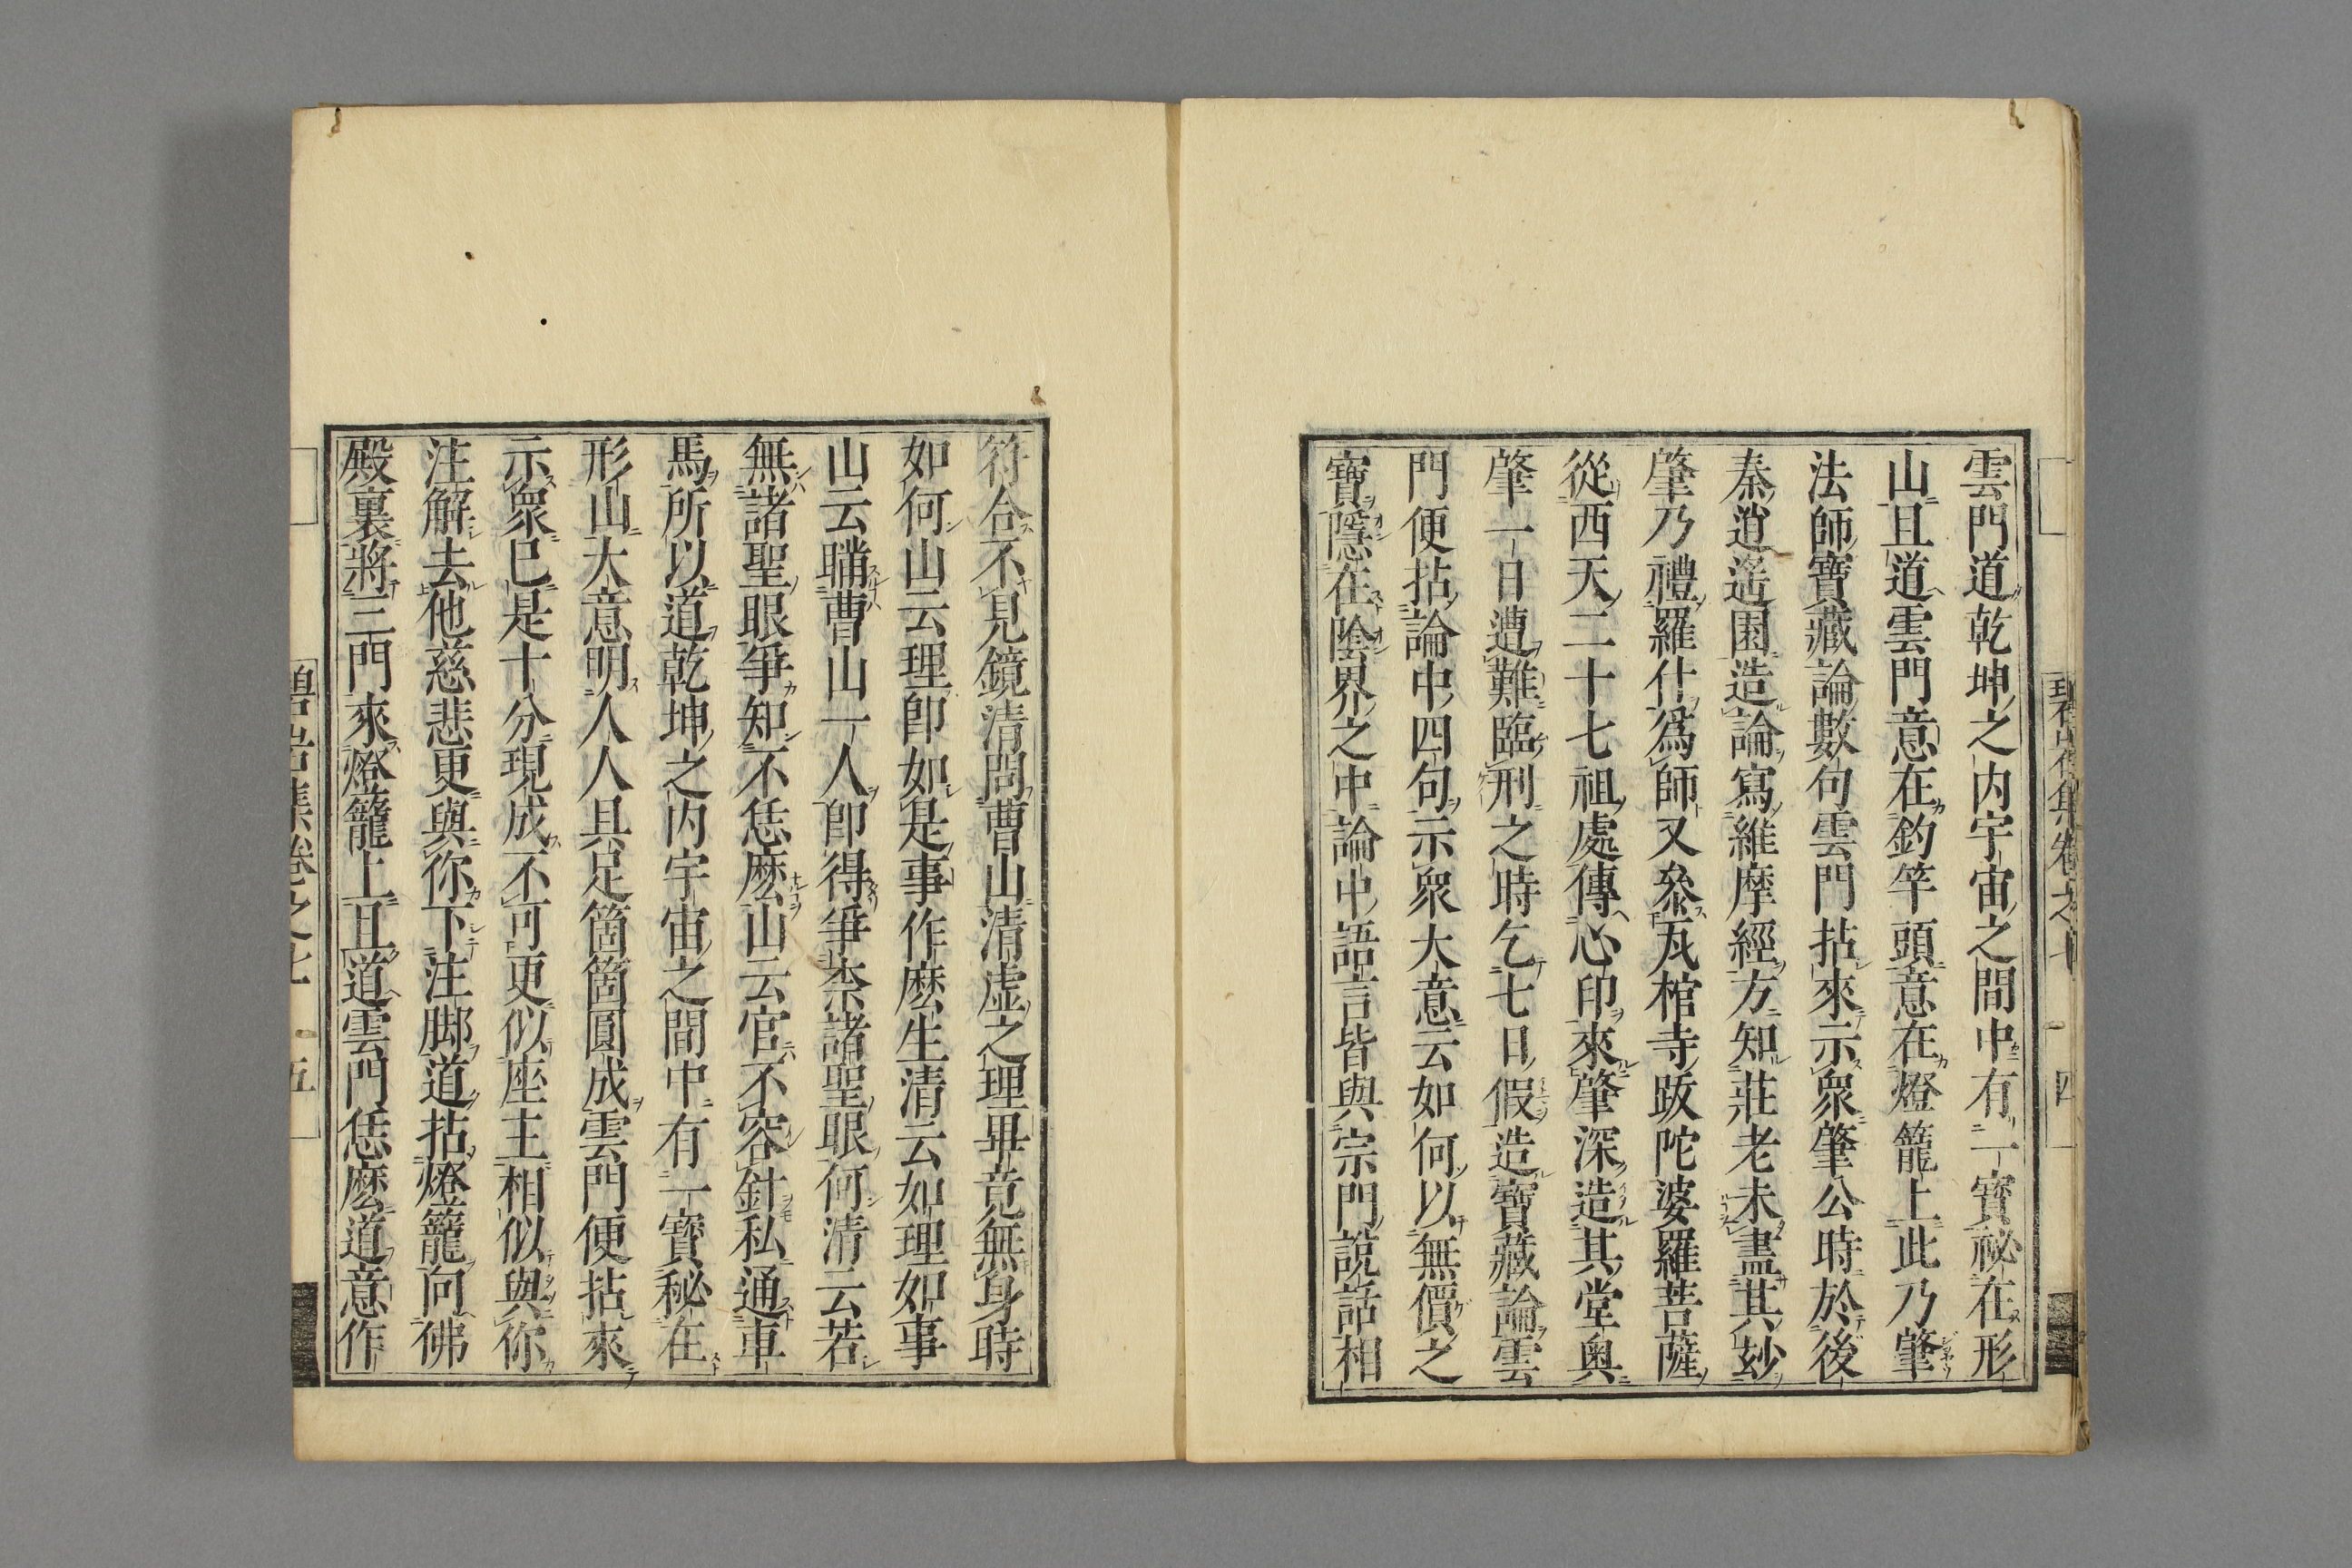 雲門道乾坤之内宇宙之間中有一寳祕在形
山且道雲門意在釣竿頭意在燈籠上此乃肇
法師寳藏論數句雲門拈來示衆肇公時於後
秦逍遙園造論寫維摩經方知莊老未盡其玅
肇乃禮羅什爲師又叅瓦棺寺跋陀婆羅菩薩
從西天二十七祖處傳心印來肇深造其堂奥
肇一日遭難臨刑之時乞七日假造寳藏論雲
門便拈論中四句示衆大意云如何以無價之
寳隱在陰界之中論中語言皆與宗門說話相
碧岩集卷之七 四
符合不見鏡清問曹山清虚之理畢竟無身時
如何山云理即如是事作麽生清云如理如事
山云瞞曹山一人即得爭柰諸聖眼何清云若
無諸聖眼爭知不恁麽山云官不容針私通車
馬所以道乾坤之内宇宙之間中有一寳秘在
形山大意明人人具足箇箇圓成雲門便拈來
示衆已是十分現成不可更似座主相似與你
注解去他慈悲更與你下注脚道拈燈籠向佛
殿裏將三門來燈籠上且道雲門恁麽道意作
碧岩集卷之七 五